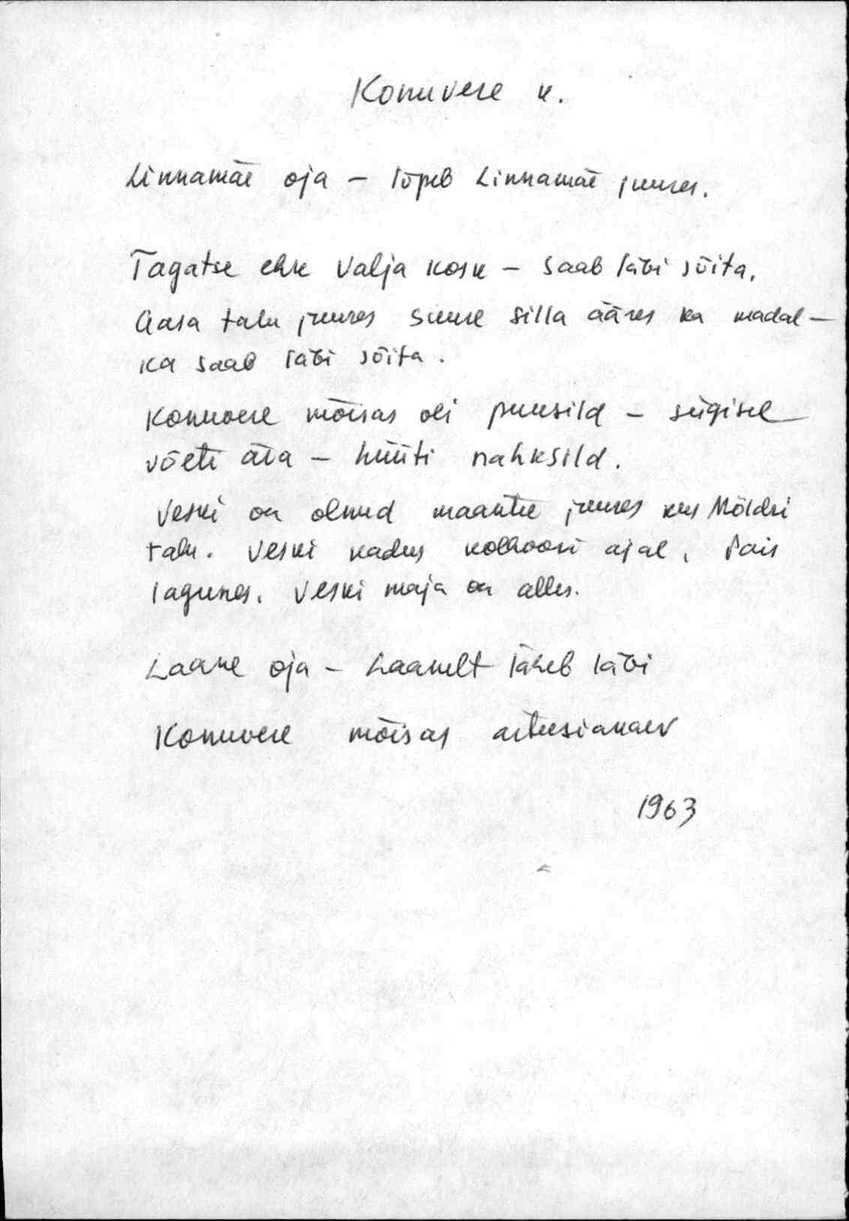 Konuvere k.
Linnamäe oja – lõpeb Linnamäe juures.
Tagatse ehk Valja kosk – saab läbi sõita.
Aasa talu juures suure silla ääres ka madal –
ka saab läbi sõita.
Konuvere mõisas oli puusild – sügisel
võeti ära – hüüti nahksild.
Veski on olnud maantee juures kus Möldri
talu. Veski kadus kolhoosi ajal, Pais
lagunes. Veski maja on alles.
Laane oja – Laanelt läheb läbi
Konuvere mõisas arteesiakaev
1963